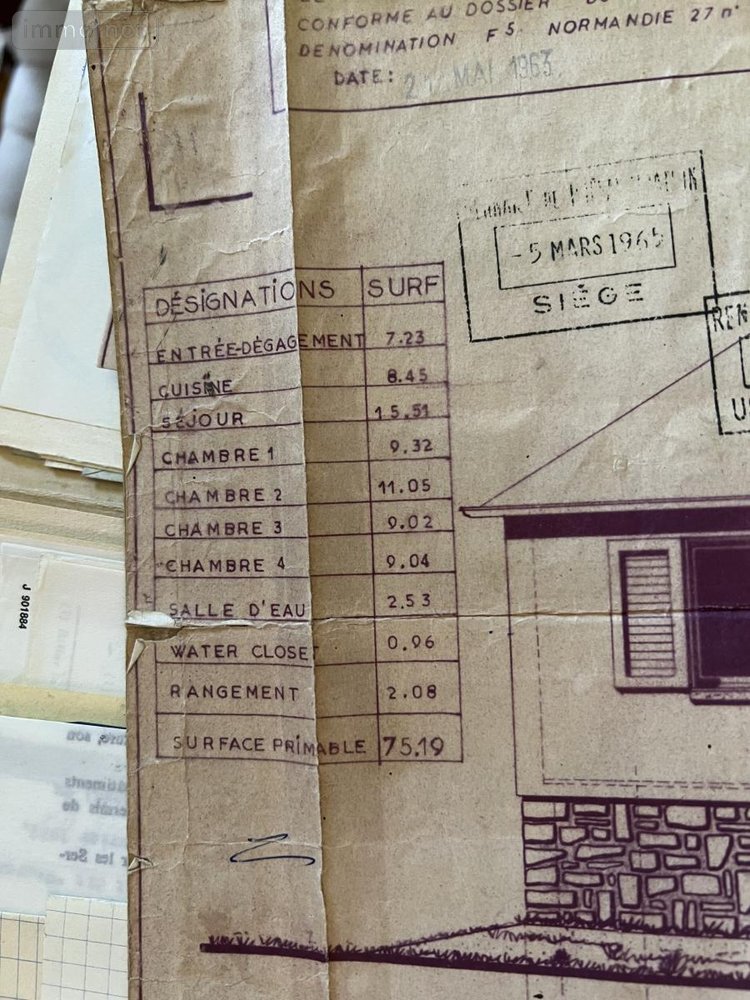 immonot
CONFORME AU DOSSIER
DENOMINATION F5 NORMANDIE 27 n°
DATE: 21 MAI 1963
-5 MARS 1965
SIÈGE
REN
U
DÉSIGNATIONS SURF
ENTRÉE-DÉGAGEMENT 7.23
CUISINE 8.45
SÉJOUR 15.51
CHAMBRE 1 9.32
CHAMBRE 2 11.05
CHAMBRE 3 9.02
CHAMBRE 4 9.04
SALLE D'EAU 2.53
WATER CLOSET 0.96
RANGEMENT 2.08
SURFACE PRIMABLE 75.19
J 901884